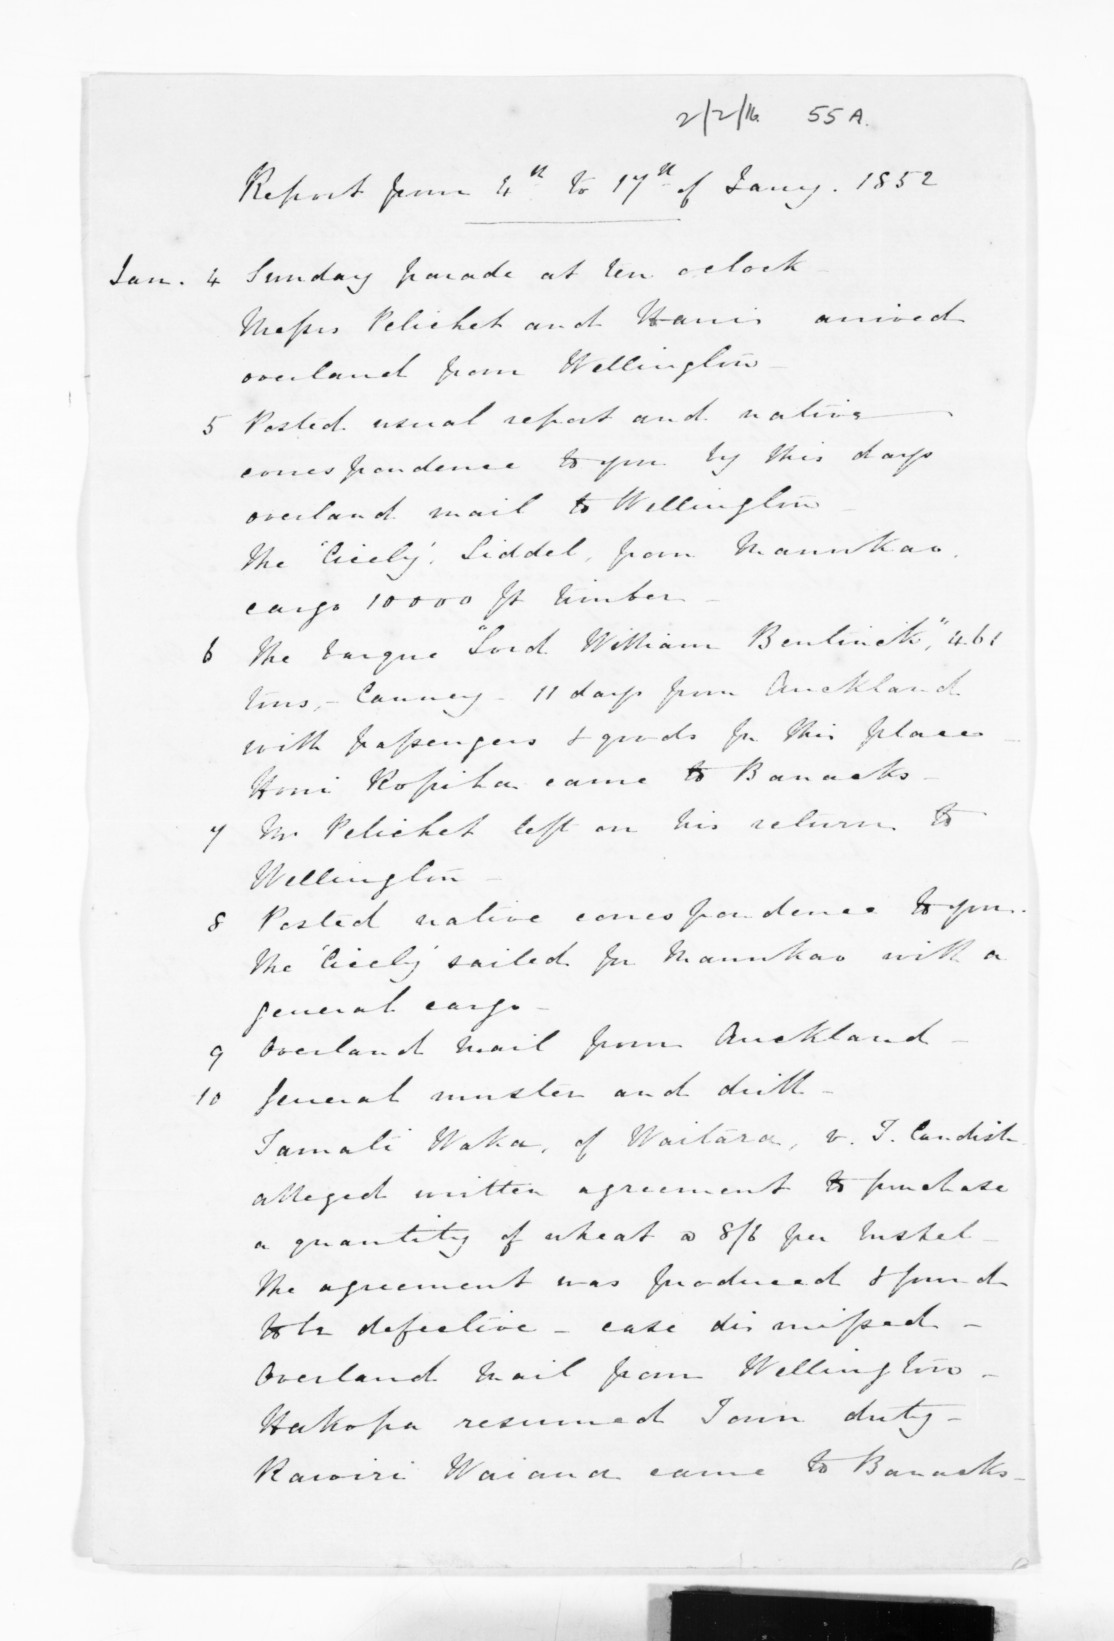 2/2/16. 55A.
Report from 4th to 17th of Jany. 1852
Jan. 4 Sunday parade at ten oclock -
Messrs Pelichet and Harris arrived
overland from Wellington -
5 Posted usual report and native
correspondence to you by this days
overland mail to Wellington -
The "Cicely", Liddel, from Manukao,
cargo 10000 ft timber -
6 The barque "Lord William Bentinck", 461
tons, - Canney - 11 days from Auckland
with passengers & goods for this place -
Honi Ropiha came to Barracks -
7 Mr Pelichet left on his return to
Wellington -
8 Posted native correspondence to you.
The 'Cicely' sailed for Manukao with a
general cargo -
9 Overland mail from Auckland -
10 General muster and drill -
Tamati Waka, of Waitara, v. T. Candish
alleged written agreement to purchase
a quantity of wheat @ 8/6 per bushel -
The agreement was produced & found
to be defective - case dismissed -
Overland mail from Wellington -
Hakopa resumed Town duty -
Rawiri Waiaua came to Barracks -